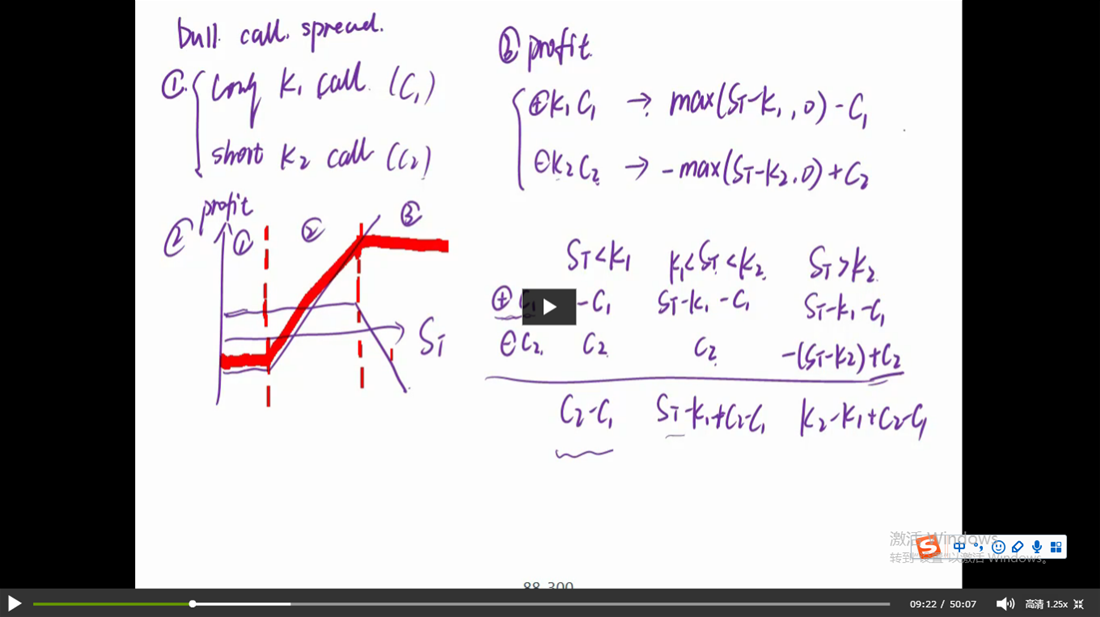 bull call spread.
① long K₁ call (C₁)
short K₂ call (C₂)
② profit
① ② ③
Sᴛ
③ profit
⊕K₁C₁ → max(Sᴛ-K₁,0)-C₁
⊖K₂C₂ → -max(Sᴛ-K₂,0)+C₂
Sᴛ<K₁ K₁<Sᴛ<K₂ Sᴛ>K₂
⊕C₁ -C₁ Sᴛ-K₁-C₁ Sᴛ-K₁-C₁
⊖C₂ C₂ C₂ -(Sᴛ-K₂)+C₂
C₂-C₁ Sᴛ-K₁+C₂-C₁ K₂-K₁+C₂-C₁
激活 Windows
转到"设置"以激活 Windows。
S 中
88-300
09:22 / 50:07 高清 1.25x